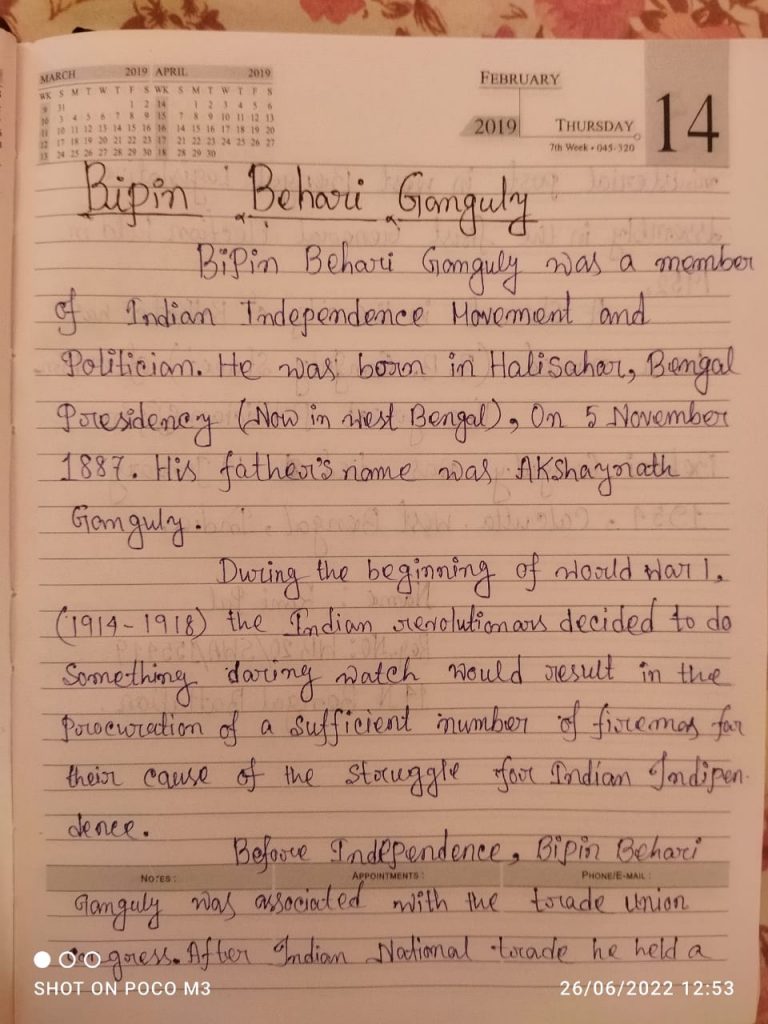 MARCH 2019 APRIL 2019
WK S M T W T F S WK S M T W T F S
9 31 1 2 14 1 2 3 4 5 6
10 3 4 5 6 7 8 9 15 7 8 9 10 11 12 13
11 10 11 12 13 14 15 16 16 14 15 16 17 18 19 20
12 17 18 19 20 21 22 23 17 21 22 23 24 25 26 27
13 24 25 26 27 28 29 30 18 28 29 30
FEBRUARY
2019 THURSDAY 14
7th Week • 045-320
Bipin Behari Ganguly
BiPin Behari Ganguly was a member
of Indian Independence Movement and
Politician. He was born in Halisahar, Bengal
Presidency (Now in west Bengal), On 5 November
1887. His father's name was AKshaynath
Ganguly.
During the beginning of world war 1,
(1914-1918) the Indian revolutionars decided to do
Something daring watch would result in the
Procuration of a sufficient number of firemas far
their cause of the struggle foor Indian Indipen-
dence.
Before Independence, Bipin Behari
NOTES : APPOINTMENTS : PHONE/E-MAIL :
Ganguly was associated with the trade union
gress. After Indian National trade he held a
SHOT ON POCO M3 26/06/2022 12:53